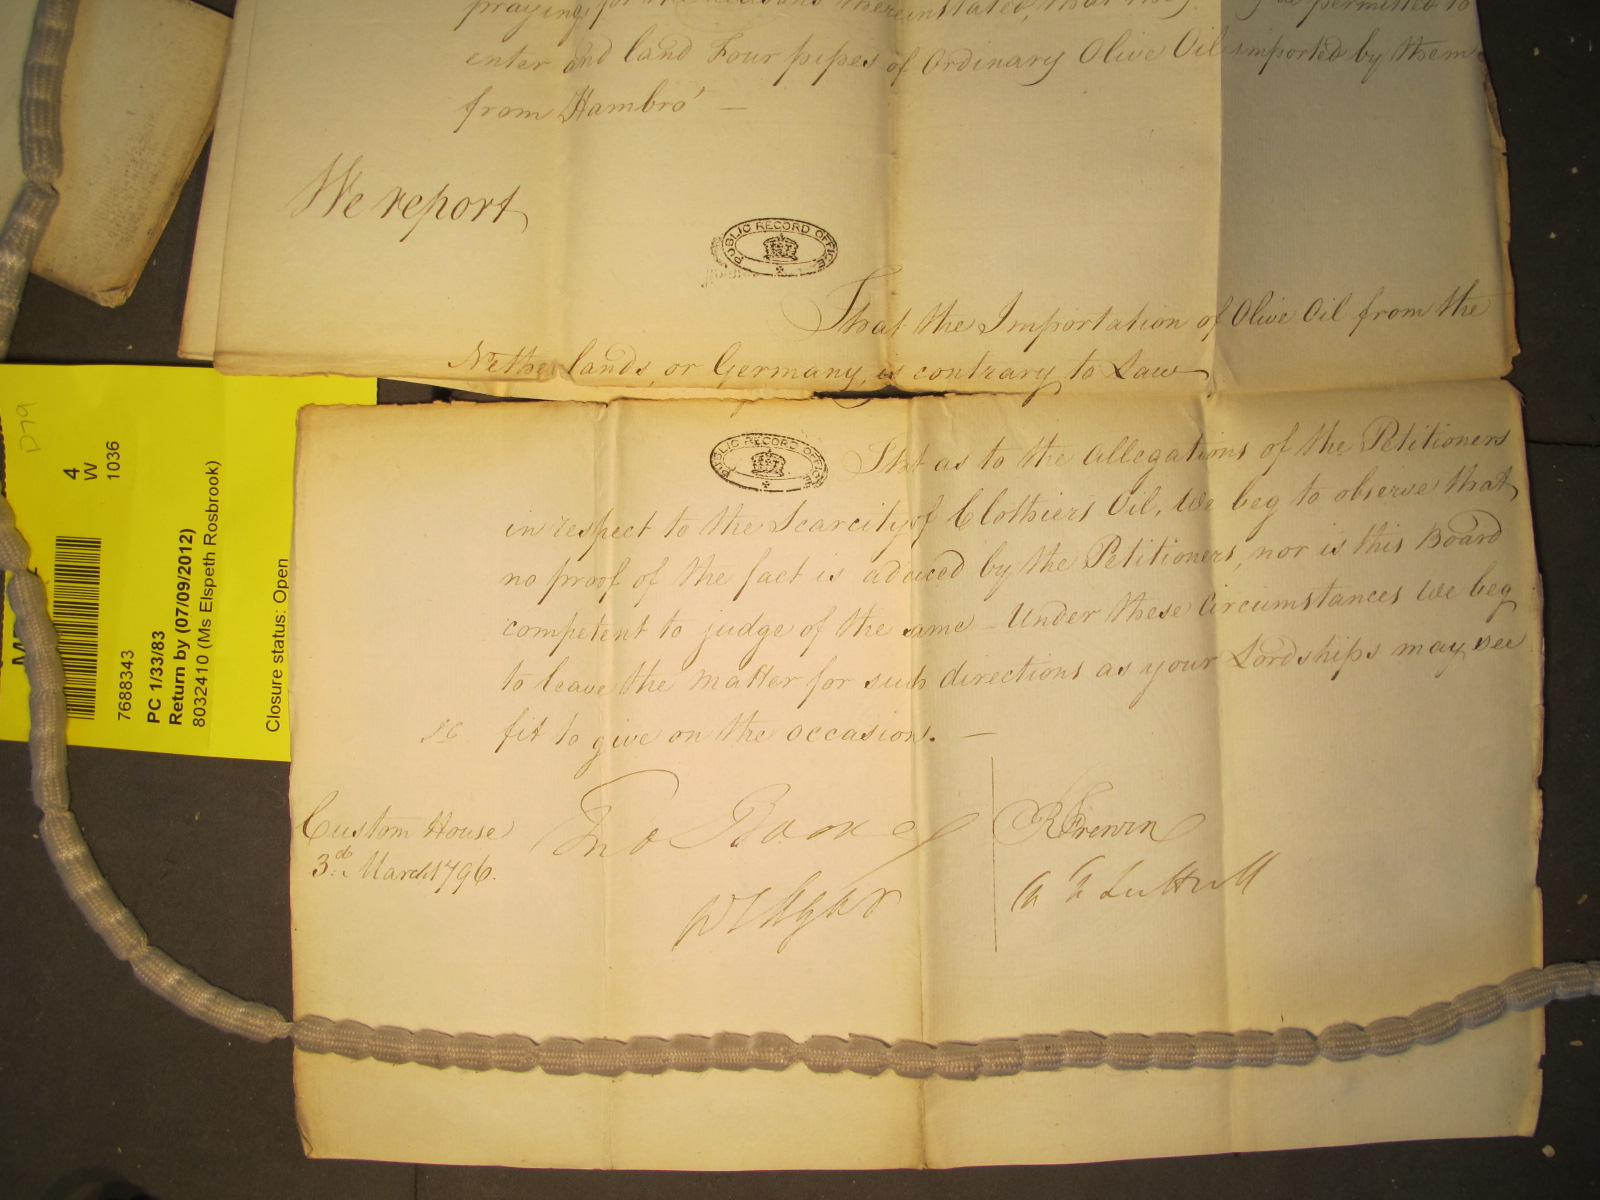 praying for the reasons therein stated, that they may be permitted to
enter and land Four pipes of Ordinary Olive Oil imported by them
from Hambro' —
We report
PUBLIC RECORD OFFICE
That the Importation of Olive Oil from the
Netherlands, or Germany, is contrary to Law
PUBLIC RECORD OFFICE
That as to the allegations of the Petitioners
in respect to the Scarcity of Clothiers Oil, We beg to observe that
no proof of the fact is adduced by the Petitioners, nor is this Board
competent to judge of the same — Under these Circumstances We beg
to leave the matter for such directions as your Lordships may see
fit to give on the occasion. —
Custom House
3.d March 1796.
R Frewin
D79
4
W
1036
7688343
PC 1/33/83
Return by (07/09/2012)
8032410 (Ms Elspeth Rosbrook)
Closure status: Open